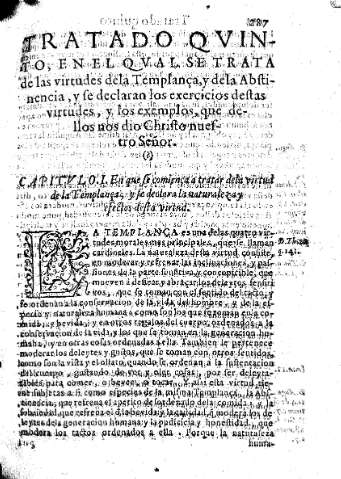 TRATADO QVIN-
TO, EN EL QVAL SE TRATA
de las virtudes dela Templança, y dela Absti
nencia, y se declaran los exercicios destas
virtudes, y los exemplos que de-
llos nos dio Christo nues-
tro Señor.
CAPITVLO I. En que se comiença a tratar dela virtud
de la Templança, y se declara la naturaleza y
efectos desta virtud.
LA TEMPLANÇA es vna de las quatro vir
tudes morales mas principales, que se llaman
cardinales. La naturaleza desta virtud consiste
en moderar y refrenar las inclinaciones, y pas-
siones de la parte sensitiua y concupicible, que
mueuen a dessear y abraçar los deleytes sensiti
uos, que se toman con el sentido del tacto, y
se ordenan a la conseruacion de la vida del hombre, y de la es
pecie y naturaleza humana como son los que se toman en la co
mida, y beuida, y en otras
conseruacion de la vida, y los que se toman en la generacion huma
na, y en otras cosas ordenadas a ella. Tambien le pertenece
moderar los deleytes y gustos, que se toman con otros sentidos,
como son la vista y el olfato, quando se ordenan a la sustentacion
del cuerpo, gustando de ver y oler cosas, por ser deleyta-
bles para comer, o beuer, o tocar. Y assi esta virtud tie-
ne subjetas a si como especies de la misma Templança, la Abs
tinencia, que refrena el apetito desordenado dela comida, y la
sobriedad, que refrena el dela beuida, y la castidad, que modera los de
leytes dela generacion humana y la pudicicia y honestidad, que
modera los tactos ordenados a ella. Porque la naturaleza
huma-